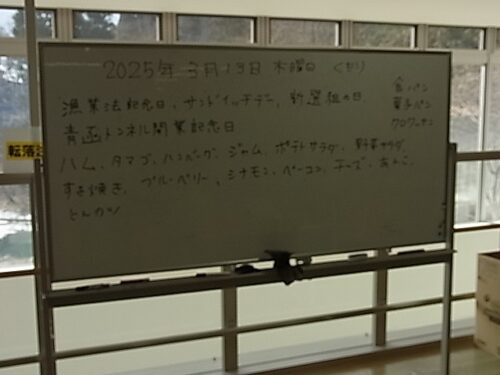 2025年 3月13日 木曜日 くもり
漁業法記念日、サンドイッチデー、新選組の日、
青函トンネル開業記念日
食パン
菓子パン
クロワッサン
ハム、タマゴ、ハンバーグ、ジャム、ポテトサラダ、野菜サラダ、
すき焼き、ブルーベリー、シナモン、ベーコン、チーズ、あんこ、
とんカツ
転落